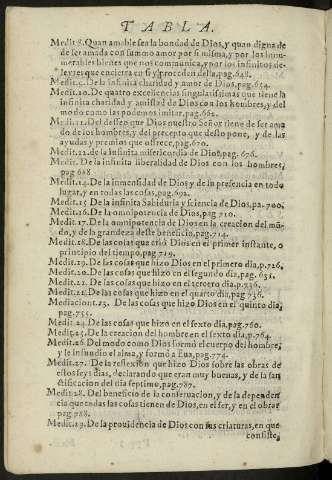 TABLA.
Medit.8. Quan amable sea la bondad de Dios, y quan digna de
de ser amada con sumo amor por si misma, y por los innu-
merables bienes que nos comunica, y por los infinitos de-
leytes que encierra en si y proceden della, pag.648.
Medit.9. De la infinita charidad y amor de Dios, pag.654.
Medit.10. De quatro excellencias singularissimas que tiene la
infinita charidad y amistad de Dios con los hombres, y del
modo como las podemos imitar, pag.662.
Medit.11. Del desseo que Dios nuestro Señor tiene de ser ama
do de los hombres, y del precepto que desto pone, y de las
ayudas y premios que offrece, pag.670.
Medit.12. de la infinita misericordia de Dios, pag. 676.
Medit. De la infinita liberalidad de Dios con los hombres,
pag 688
Medit.14. De la inmensidad de Dios y de su presencia en todo
lugar, y en todas las cosas, pag.692.
Medit.15 De la infinita Sabiduria y sciencia de Dios, pa.700.
Medit.16. De la omnipotencia de Dios, pag 710.
Medit.17. De la omnipotencia de Dios en la creacion del mū-
do, y de la grandeza deste beneficio, pag.714.
Medit.18. De las cosas que criò Dios en el primer instante, o
principio del tiempo, pag 719.
Medit.19. De las cosas que hizo Dios en el primero dia, p.726.
Medit.20. De las cosas que hizo en el segundo dia, pag. 631.
Medit.21. De las cosas que hizo en el tercero dia, p.736.
Medit.22. De las cosas que hizo en el quarto dia, pag 736.
Mediacion t.23. De las cosas que hizo Dios en el quinto dia,
pag.755.
Medit.24. De las cosas que hizo en el sexto dia, pag.760.
Medit.25. De la creacion del hombre en el sexto dia, p.764.
Medit.26. Del modo como Dios formò el cuerpo del hombre,
y le infundio el alma, y formò a Eua, pag 774.
Medit.27. De la reflexion que hizo Dios sobre las obras de
estos seys dias, declarando que eran muy buenas, y de la san
ctificacion del dia septimo, pag.787.
Medit.28. Del beneficio de la conseruacion, y de la dependen
cia que todas las cosas tienen de Dios, en el ser, y en el obrar
pag 788.
Medit.29. De la prouidencia de Dios con sus criaturas, en que
consiste,